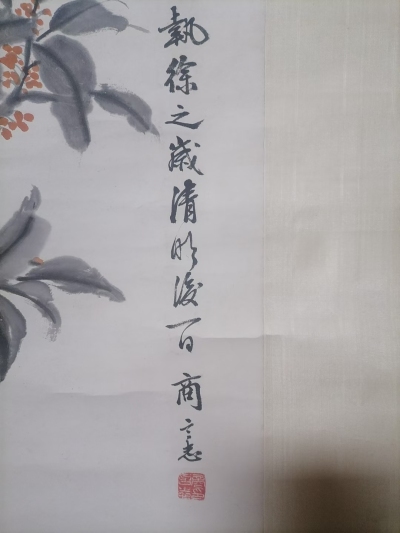 執徐之歲清明後一日 商言志